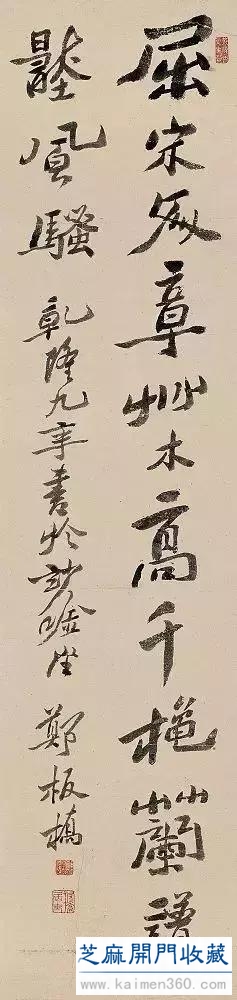 屈宋文章艸木高千穐蘭譜
壓風騷 乾隆九年書於座 鄭板橋
芝麻開門收藏
www.kaimen360.com